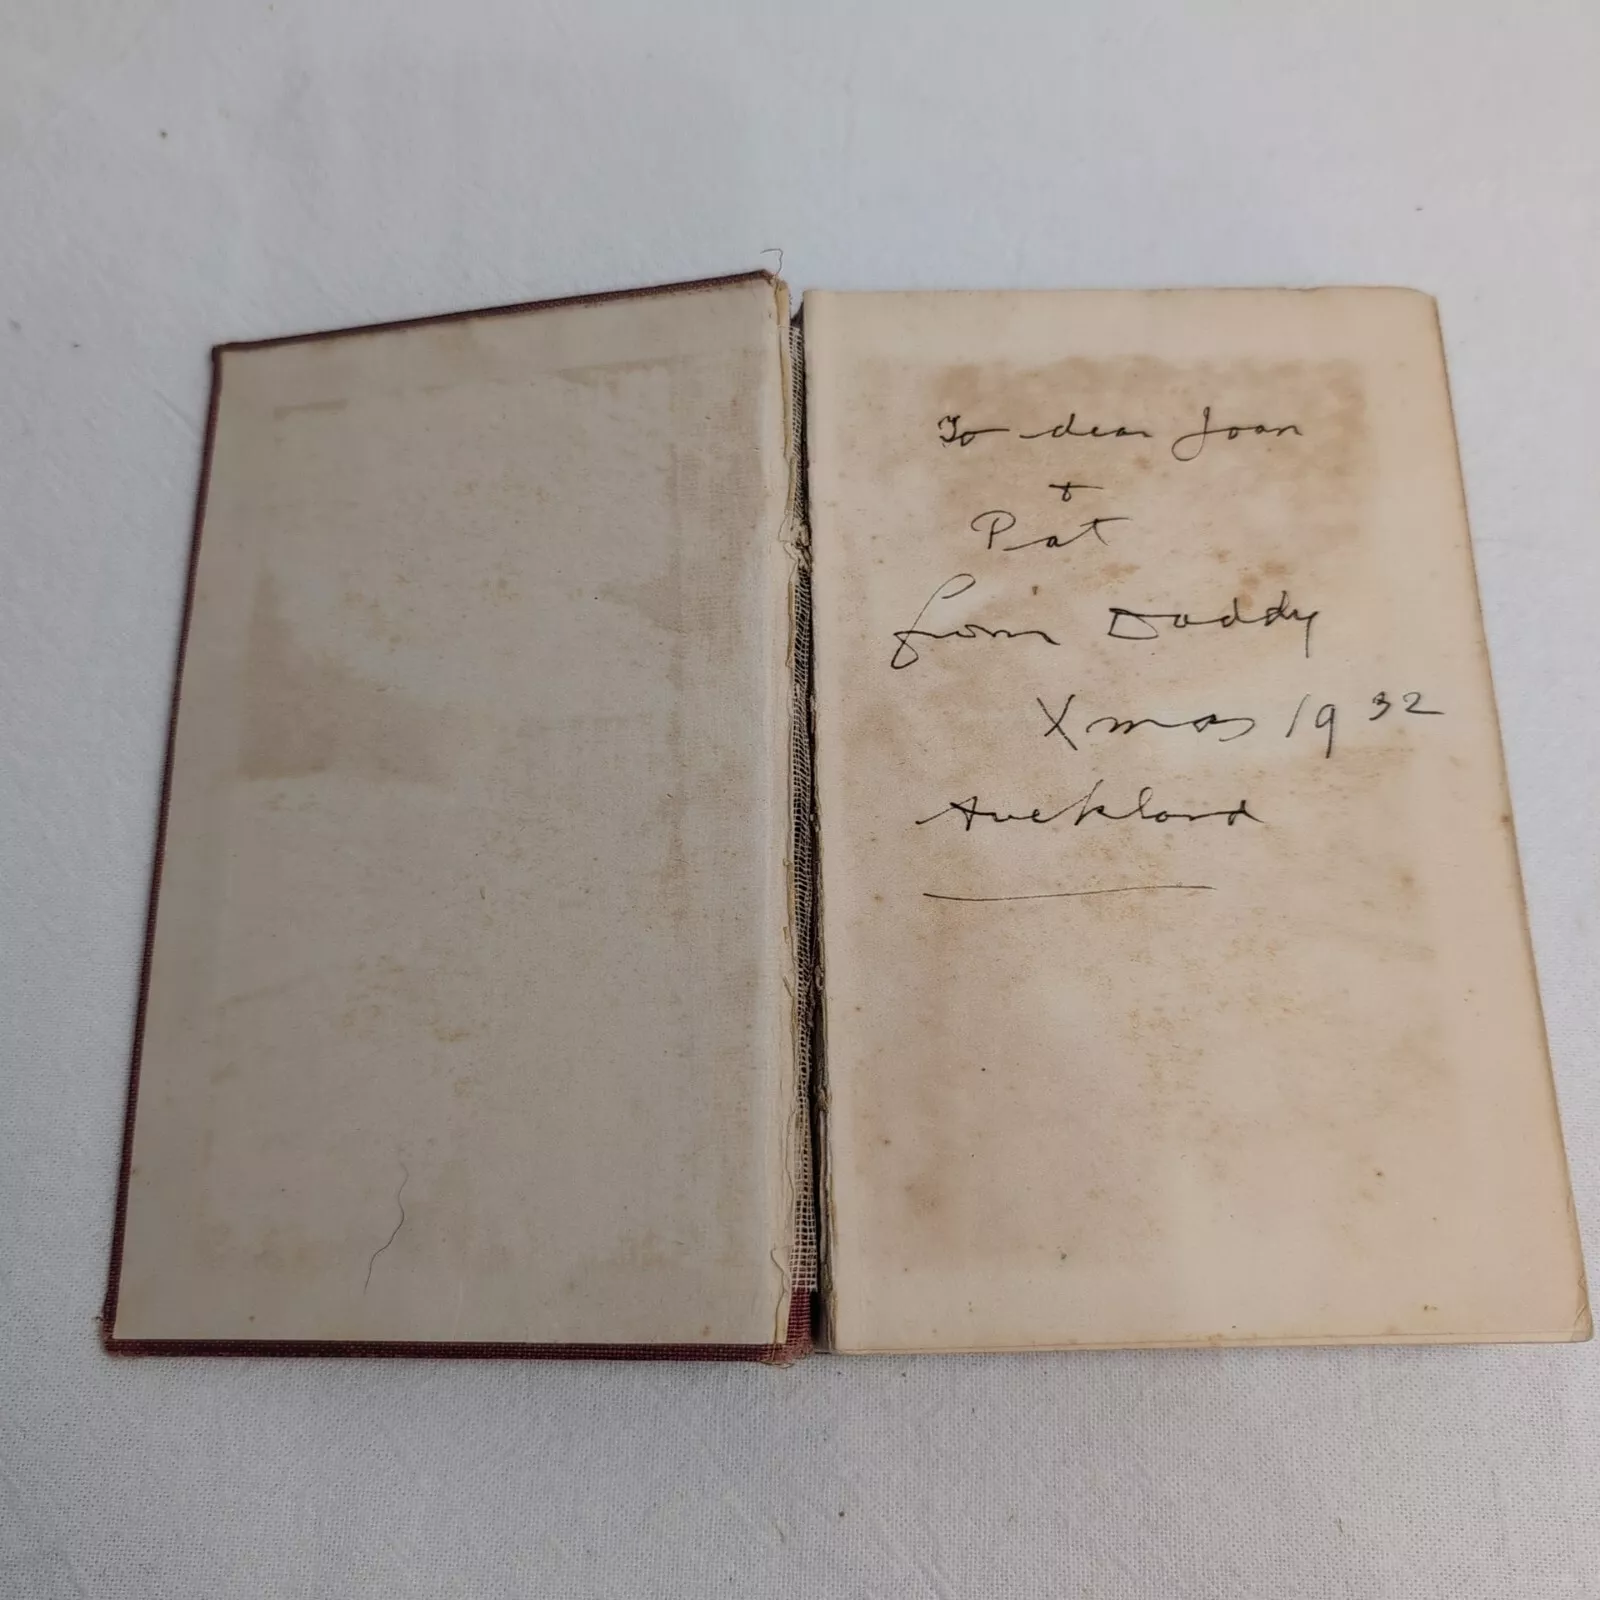 To dear Joan
+
Pat
from Daddy
Xmas 1932
Auckland